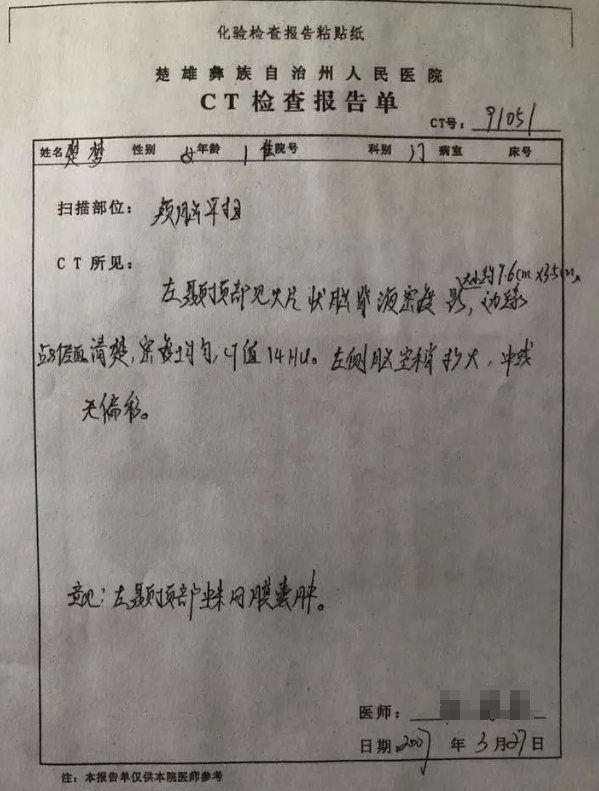 化验检查报告粘贴纸
楚雄彝族自治州人民医院
CT检查报告单
CT号: 91051
姓名 楚梦 性别 女 年龄 1 住院号 科别 门 病室 床号
扫描部位: 颅脑平扫
大小约7.6cm×3.5cm,
CT所见: 左颞顶部见大片状脑脊液密度影, 边缘
清楚, 密度均匀, CT值14HU。左侧脑室稍扩大, 中线
无偏移。
意见: 左颞顶部蛛网膜囊肿。
医师:
日期: 2007 年 3 月 27 日
注: 本报告单仅供本院医师参考